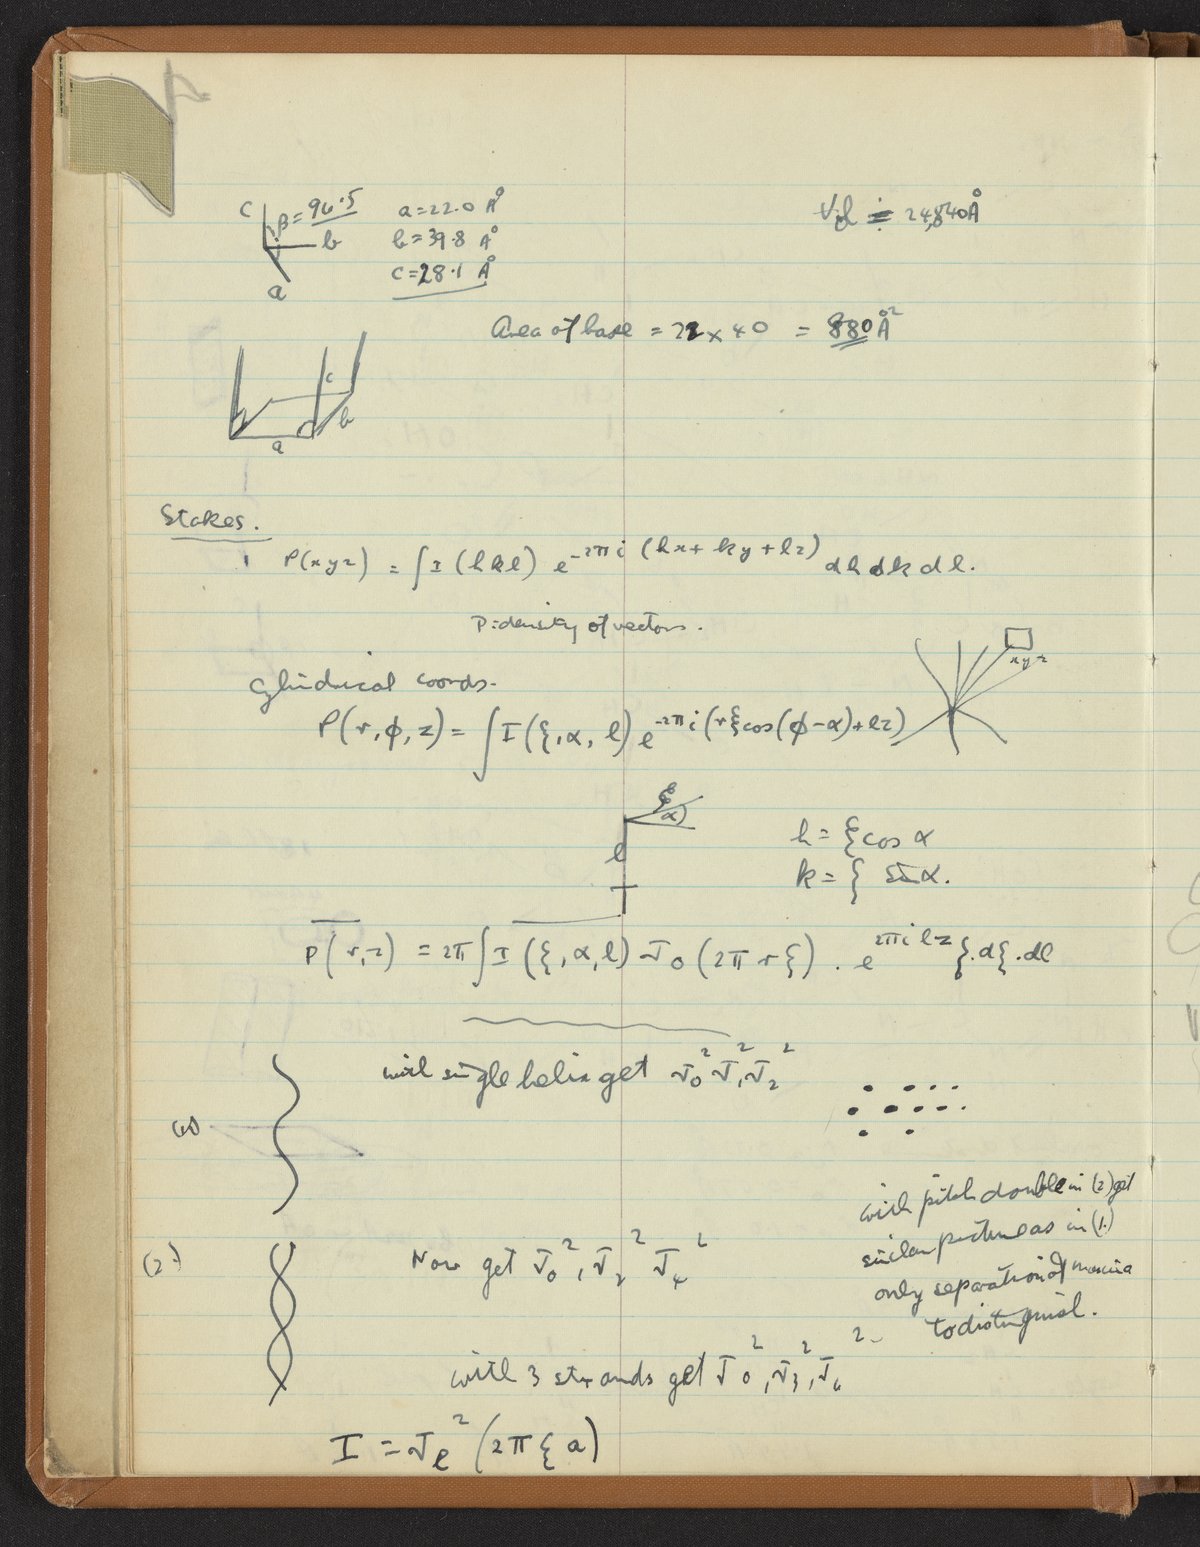 C β = 96.5 a = 22.0 Å
b b = 39.8 Å
a c = 28.1 Å
= 24,840 Å
Area of base = 22 × 40 = 880 Å²
c
b
a
Stokes.
P(xyz) = ∫ I (hkl) e^{-2πi (hx + ky + lz)} dh dk dl.
P = density of vectors.
xyz
Cylindrical coords.
P(r, φ, z) = ∫ I (ξ, α, l) e^{-2πi (rξ cos(φ-α) + lz)}
ξ
α
l
h = ξ cos α
k = ξ sin α.
P̅(r, z) = 2π ∫ I̅ (ξ, α, l) J₀ (2π r ξ) . e^{2πi lz} ξ . dξ . dl
with single helix get J₀² J₁² J₂²
(1)
with pitch double in (2) get
similar picture as in (1.)
only separation of maxima
to distinguish.
(2)
Now get J₀², J₂² J₄²
with 3 strands get J₀², J₃², J₆²
I = J_l² (2π ξ a)